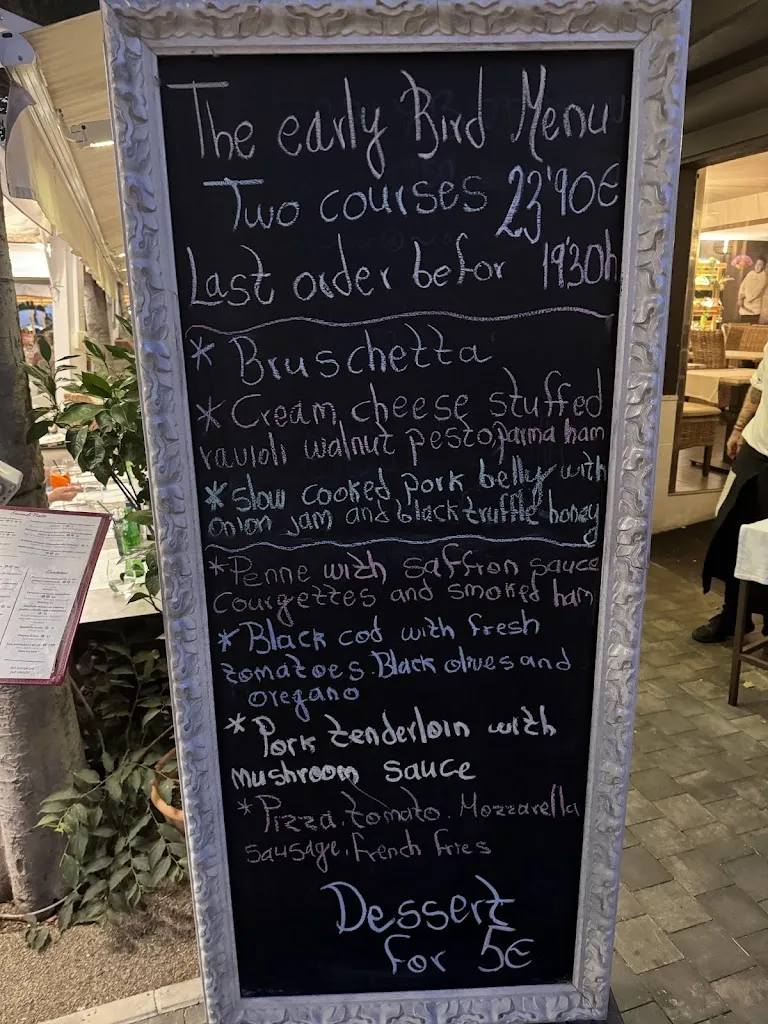 The early Bird Menu
Two courses 23'90€
Last order befor 19'30h
* Bruschetta
* Cream cheese stuffed
ravioli walnut pesto, parma ham
* slow cooked pork belly with
onion jam and black truffle honey
* Penne with saffron sauce
Courgettes and smoked ham
* Black cod with fresh
tomatoes. Black olives and
oregano
* Pork tenderloin with
mushroom sauce
* Pizza. tomato. Mozzarella
sausage. french fries
Dessert
for 5€